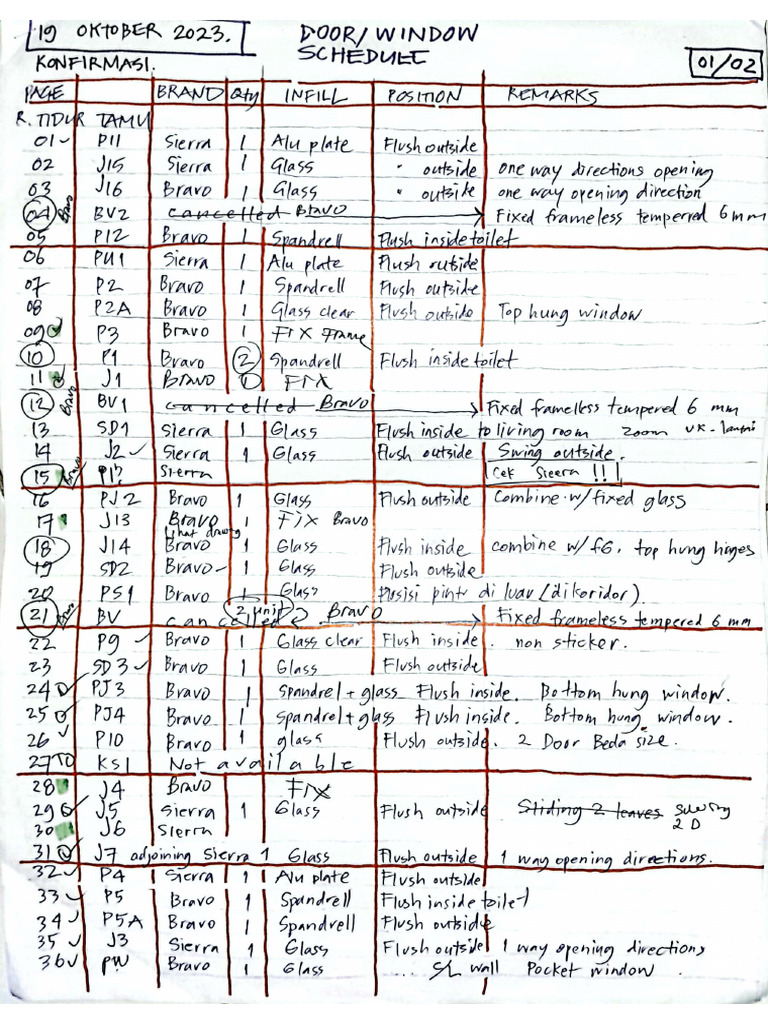 19 OKTOBER 2023.
DOOR/WINDOW
SCHEDULE
KONFIRMASI.
01/02
PAGE BRAND Qty INFILL POSITION REMARKS
R. TIDUR TAMU
01 P11 Sierra 1 Alu plate Flush outside
02 J15 Sierra 1 Glass " outside one way directions opening
03 J16 Bravo 1 Glass " outside one way opening direction
04 Bravo BV2 cancelled Bravo Fixed frameless temperred 6 mm
05 P12 Bravo 1 Spandrell Flush inside toilet
06 PU1 Sierra 1 Alu plate Flush outside
07 P2 Bravo 1 Spandrell Flush outside
08 P2A Bravo 1 Glass clear Flush outside Top hung window
09 P3 Bravo 1 FIX Frame
10 P1 Bravo 2 Spandrell Flush inside toilet
11 J1 Bravo 1 FIX
12 Bravo BV1 cancelled Bravo Fixed framelless tempered 6 mm
13 SD1 Sierra 1 Glass Flush inside to living room zoom UK-
14 J2 Sierra 1 Glass Flush outside Swing outside.
15 Bravo Sierra Cek Sieera !!!
16 PJ2 Bravo 1 Glass Flush outside Combine w/ fixed glass
17 J13 Bravo FIX Bravo
lihat drawing
18 J14 Bravo 1 Glass Flush inside combine w/ FG, top hung hinges
19 SD2 Bravo 1 Glass Flush outside
20 PS1 Bravo 1 Glass Posisi pintu di luar (dikoridor)
21 Bravo BV cancelled 2 unit Bravo Fixed frameless tempered 6 mm
22 P9 Bravo 1 Glass clear Flush inside. non sticker.
23 SD3 Bravo 1 Glass Flush outside
24 PJ3 Bravo 1 Spandrel + glass Flush inside. Bottom hung window.
25 PJ4 Bravo 1 Spandrel + glass Flush inside. Bottom hung window.
26 P10 Bravo 1 glass Flush outside. 2 Door Beda size.
27 KS1 Not available
28 J4 Bravo FIX
29 J5 Sierra 1 Glass Flush outside Sliding 2 leaves swing
30 J6 Sierra 2 D
31 J7 adjoining Sierra 1 Glass Flush outside 1 way opening directions.
32 P4 Sierra 1 Alu plate Flush outside
33 P5 Bravo 1 Spandrell Flush inside toilet
34 P5A Bravo 1 Spandrell Flush outside
35 J3 Sierra 1 Glass Flush outside 1 way opening directions
36 PW Bravo 1 Glass .... wall Pocket window.